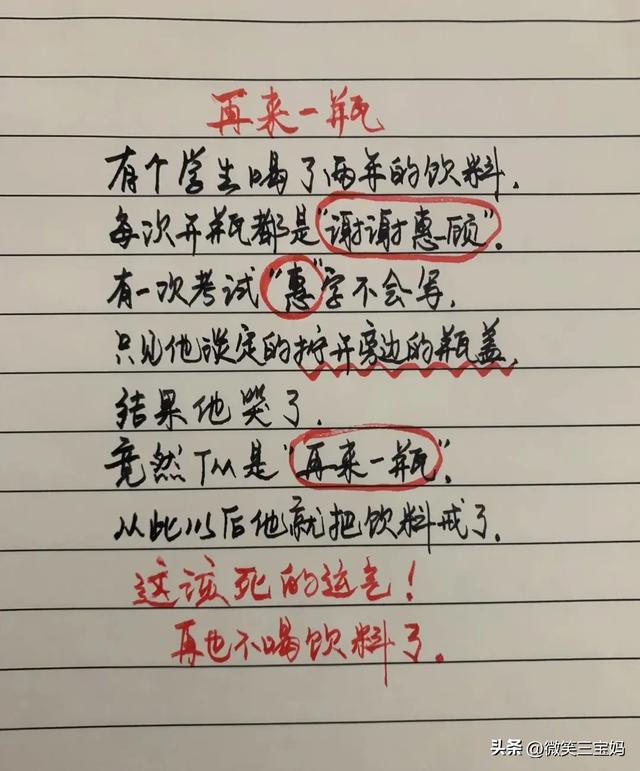 再来一瓶
有个学生喝了两年的饮料.
每次开瓶都是“谢谢惠顾”.
有一次考试“惠”字不会写,
只见他淡定的拧开旁边的瓶盖,
结果他哭了.
竟然TM是“再来一瓶”.
从此以后他就把饮料戒了.
这该死的运气!
再也不喝饮料了.
头条 @微笑三宝妈